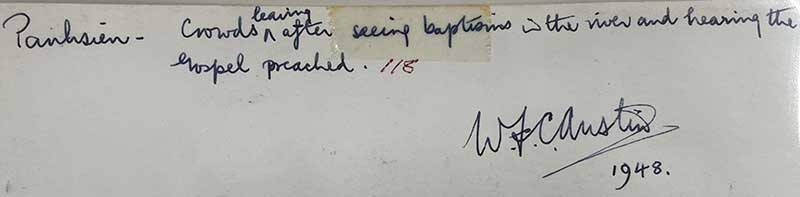 Panhsien - Crowds leaving after seeing baptisms in the river and hearing the
Gospel preached. 115
W.F.C. Austin
1948.